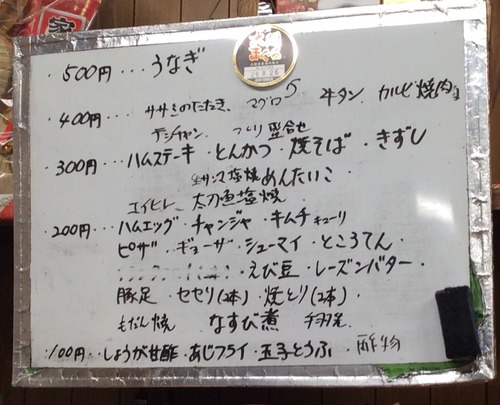 ・500円・・・うなぎ
・400円・・・ササミのたたき、マグロ 牛タン カルビ焼肉
テッチャン つくり盛合せ
・300円・・・ハムステーキ・とんかつ・焼そば・きずし
生サンマ塩焼 めんたいこ
エイヒレ 太刀魚塩焼
・200円・・・ハムエッグ・チャンジャ・キムチキューリ
ピザ・ギョーザ・シューマイ・ところてん・
・えび豆・レーズンバター・
豚足・セセリ(2本)・焼とり(2本)・
もだん焼 なすび煮 手羽先
・100円・・・しょうが甘酢・あじフライ・玉子とうふ・酢物